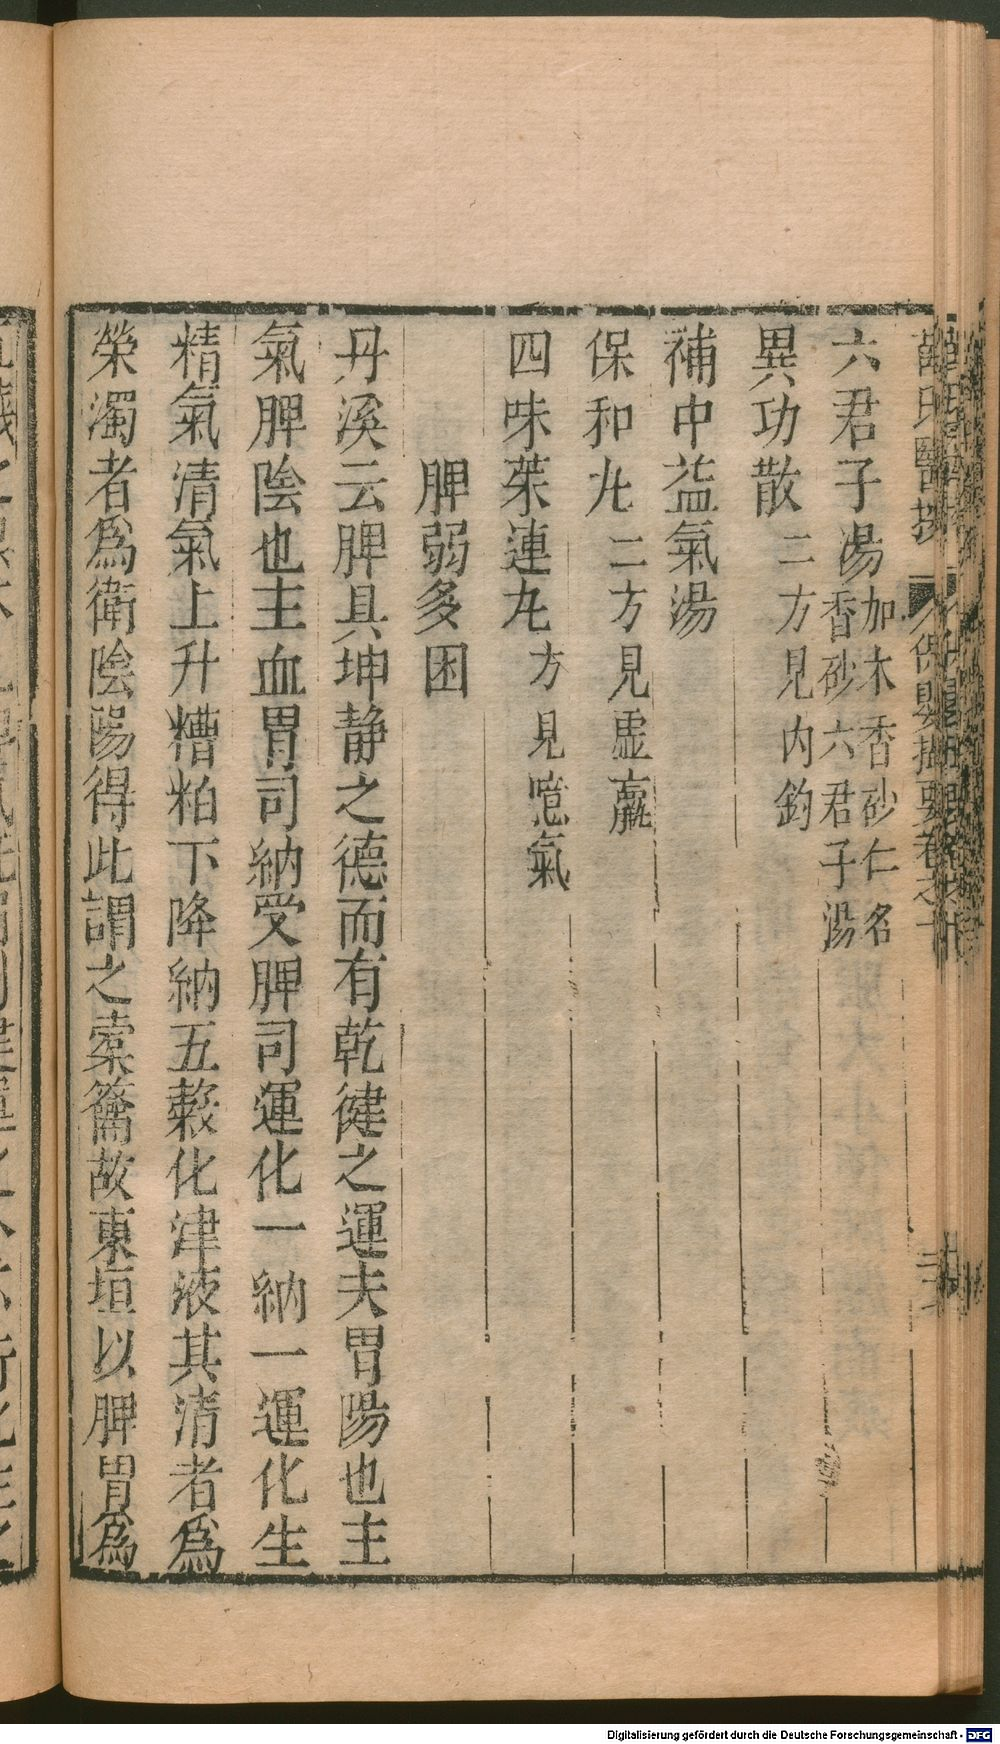 六君子湯 加木香砂仁名香砂六君子湯
異功散 二方見內鈞
補中益氣湯
保和丸 二方見虛羸
四味茱連丸 方見噫氣
脾弱多困
丹溪云脾具坤静之德而有乾健之運夫胃陽也主
氣脾陰也主血胃司納受脾司運化一納一運化生
精氣清氣上升糟粕下降納五穀化津液其清者為
榮濁者為衛陰陽得此謂之橐籥故東垣以脾胃為
Digitalisierung gefördert durch die Deutsche Forschungsgemeinschaft - DFG